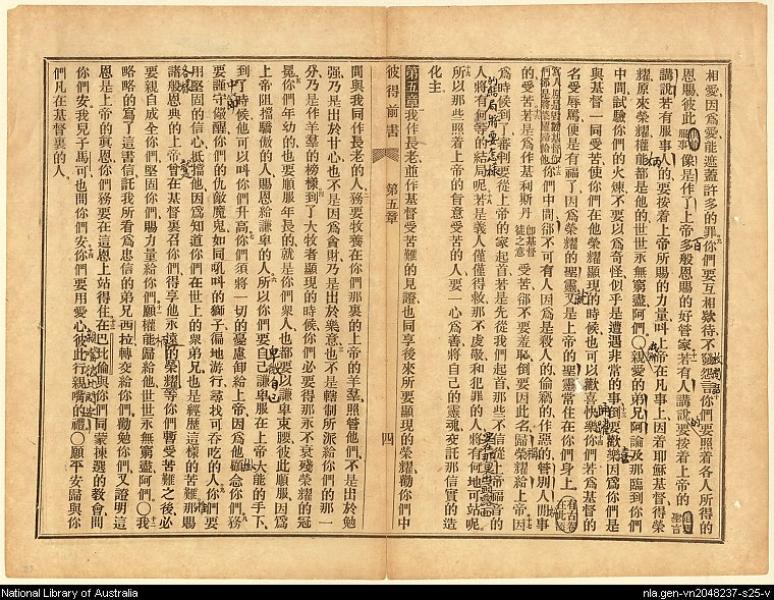 相愛因爲愛能遮蓋許多的罪你們要互相欵待不發怨言你們要照着各人所得的
恩賜彼此服事像是作了上帝多般恩賜的好管家若有人講說要按着上帝的
講說若有服事人的要按着上帝所賜的力量呌上帝在凡事上因着耶穌基督得榮
耀原來榮耀權能都是他的世世無窮盡阿們〇親愛的弟兄阿論及那臨到你們
中間試驗你們的火煉不要以爲奇怪似乎是遭遇非常的事倒要歡樂因爲你們是
與基督一同受苦使你們在他榮耀顯現的時候也可以歡喜快樂你們若爲基督的
名受辱罵便是有福了因爲榮耀的聖靈又是上帝的聖靈常住在你們身上
你們中間卻不可有人因爲是殺人的偷竊的作惡的管別人閒事
的受苦若是爲作基利斯丹 卽基督徒之意 受苦卻不要羞恥倒要因此名歸榮耀給上帝因
爲時候到了審判要從上帝的家起首若是先從我們起首那些不信從上帝福音的
人將有何等的結局呢若是義人僅僅得救那不虔敬和犯罪的人將有何地可站呢
所以那些照着上帝的旨意受苦的人要一心爲善將自己的靈魂交託那信實的造
化主
第五章 我作長老並作基督受苦難的見證也同享後來所要顯現的榮耀勸你們中
彼得前書 第五章 四
間與我同作長老的人務要牧養在你們那裏的上帝的羊羣照管他們不是出於勉
强乃是出於甘心也不是因爲貪財乃是出於樂意也不是轄制所派給你們的那一
分乃是作羊羣的榜樣到了大牧者顯現的時候你們必要得那永不衰殘榮耀的冠
冕你們年幼的也要順服年長的就是你們衆人也都要以謙卑束腰彼此順服因爲
上帝阻擋驕傲的人賜恩給謙卑的人所以你們要自己謙卑服在上帝大能的手下
到了時候他可以呌你們升高你們須將一切的憂慮卸給上帝因爲他顧念你們務
要謹守儆醒你們的仇敵魔鬼如同吼呌的獅子徧地游行尋找可吞吃的人你們要
用堅固的信心抵擋他因爲知道你們在世上的衆弟兄也是經歷這樣的苦難那賜
諸般恩典的上帝曾在基督裏召你們得享他永遠的榮耀等你們暫受苦難之後必
要親自成全你們堅固你們賜力量給你們願權能歸給他世世永無窮盡阿們〇我
略略的寫了這書信託我所看爲忠信的弟兄西拉轉交給你們勸勉你們又證明這
恩是上帝的眞恩你們務要在這恩上站得住在巴比倫與你們同蒙揀選的教會問
你們安我兒子馬可也問你們安你們要用愛心彼此行親嘴的禮〇願平安歸與你
們凡在基督裏的人
National Library of Australia
nla.gen-vn2048237-s25-v